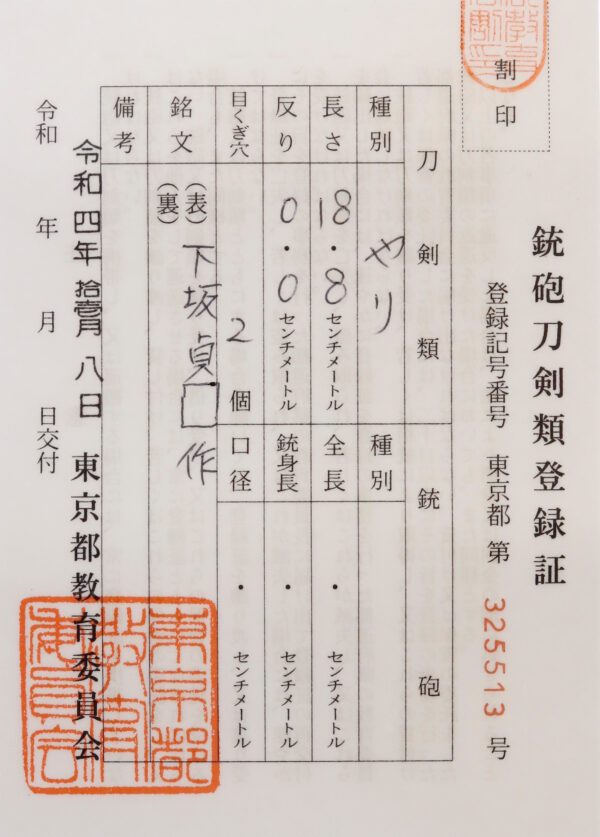 銃砲刀剣類登録証
割印
登録記号番号 東京都 第 325513 号
刀剣類
種別 やり
長さ 18・8センチメートル
反り 0・0センチメートル
目くぎ穴 2 個
銘文 (表) 下坂貞□作
(裏)
備考
銃砲
種別
全長 ・ センチメートル
銃身長 ・ センチメートル
口径 ・ センチメートル
令和 年 月 日交付
令和四年拾壱月八日
東京都教育委員会
東京都教育委員会